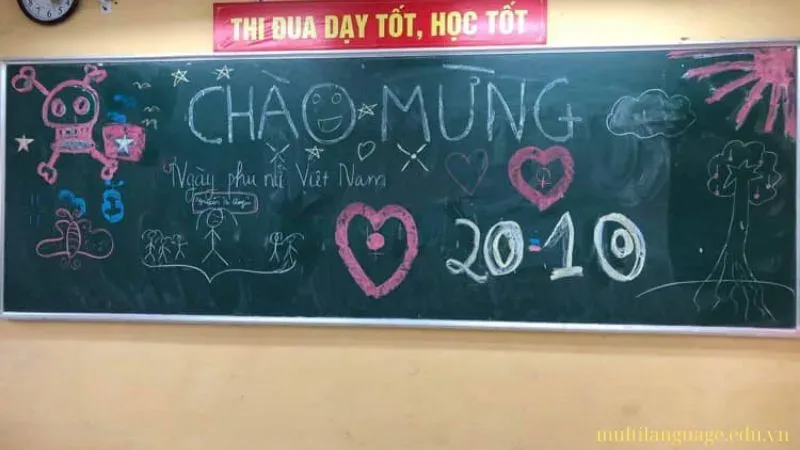 THI ĐUA DẠY TỐT, HỌC TỐT
CHÀO MỪNG
Ngày phụ nữ Việt Nam
20-10
multilanguage.edu.vn